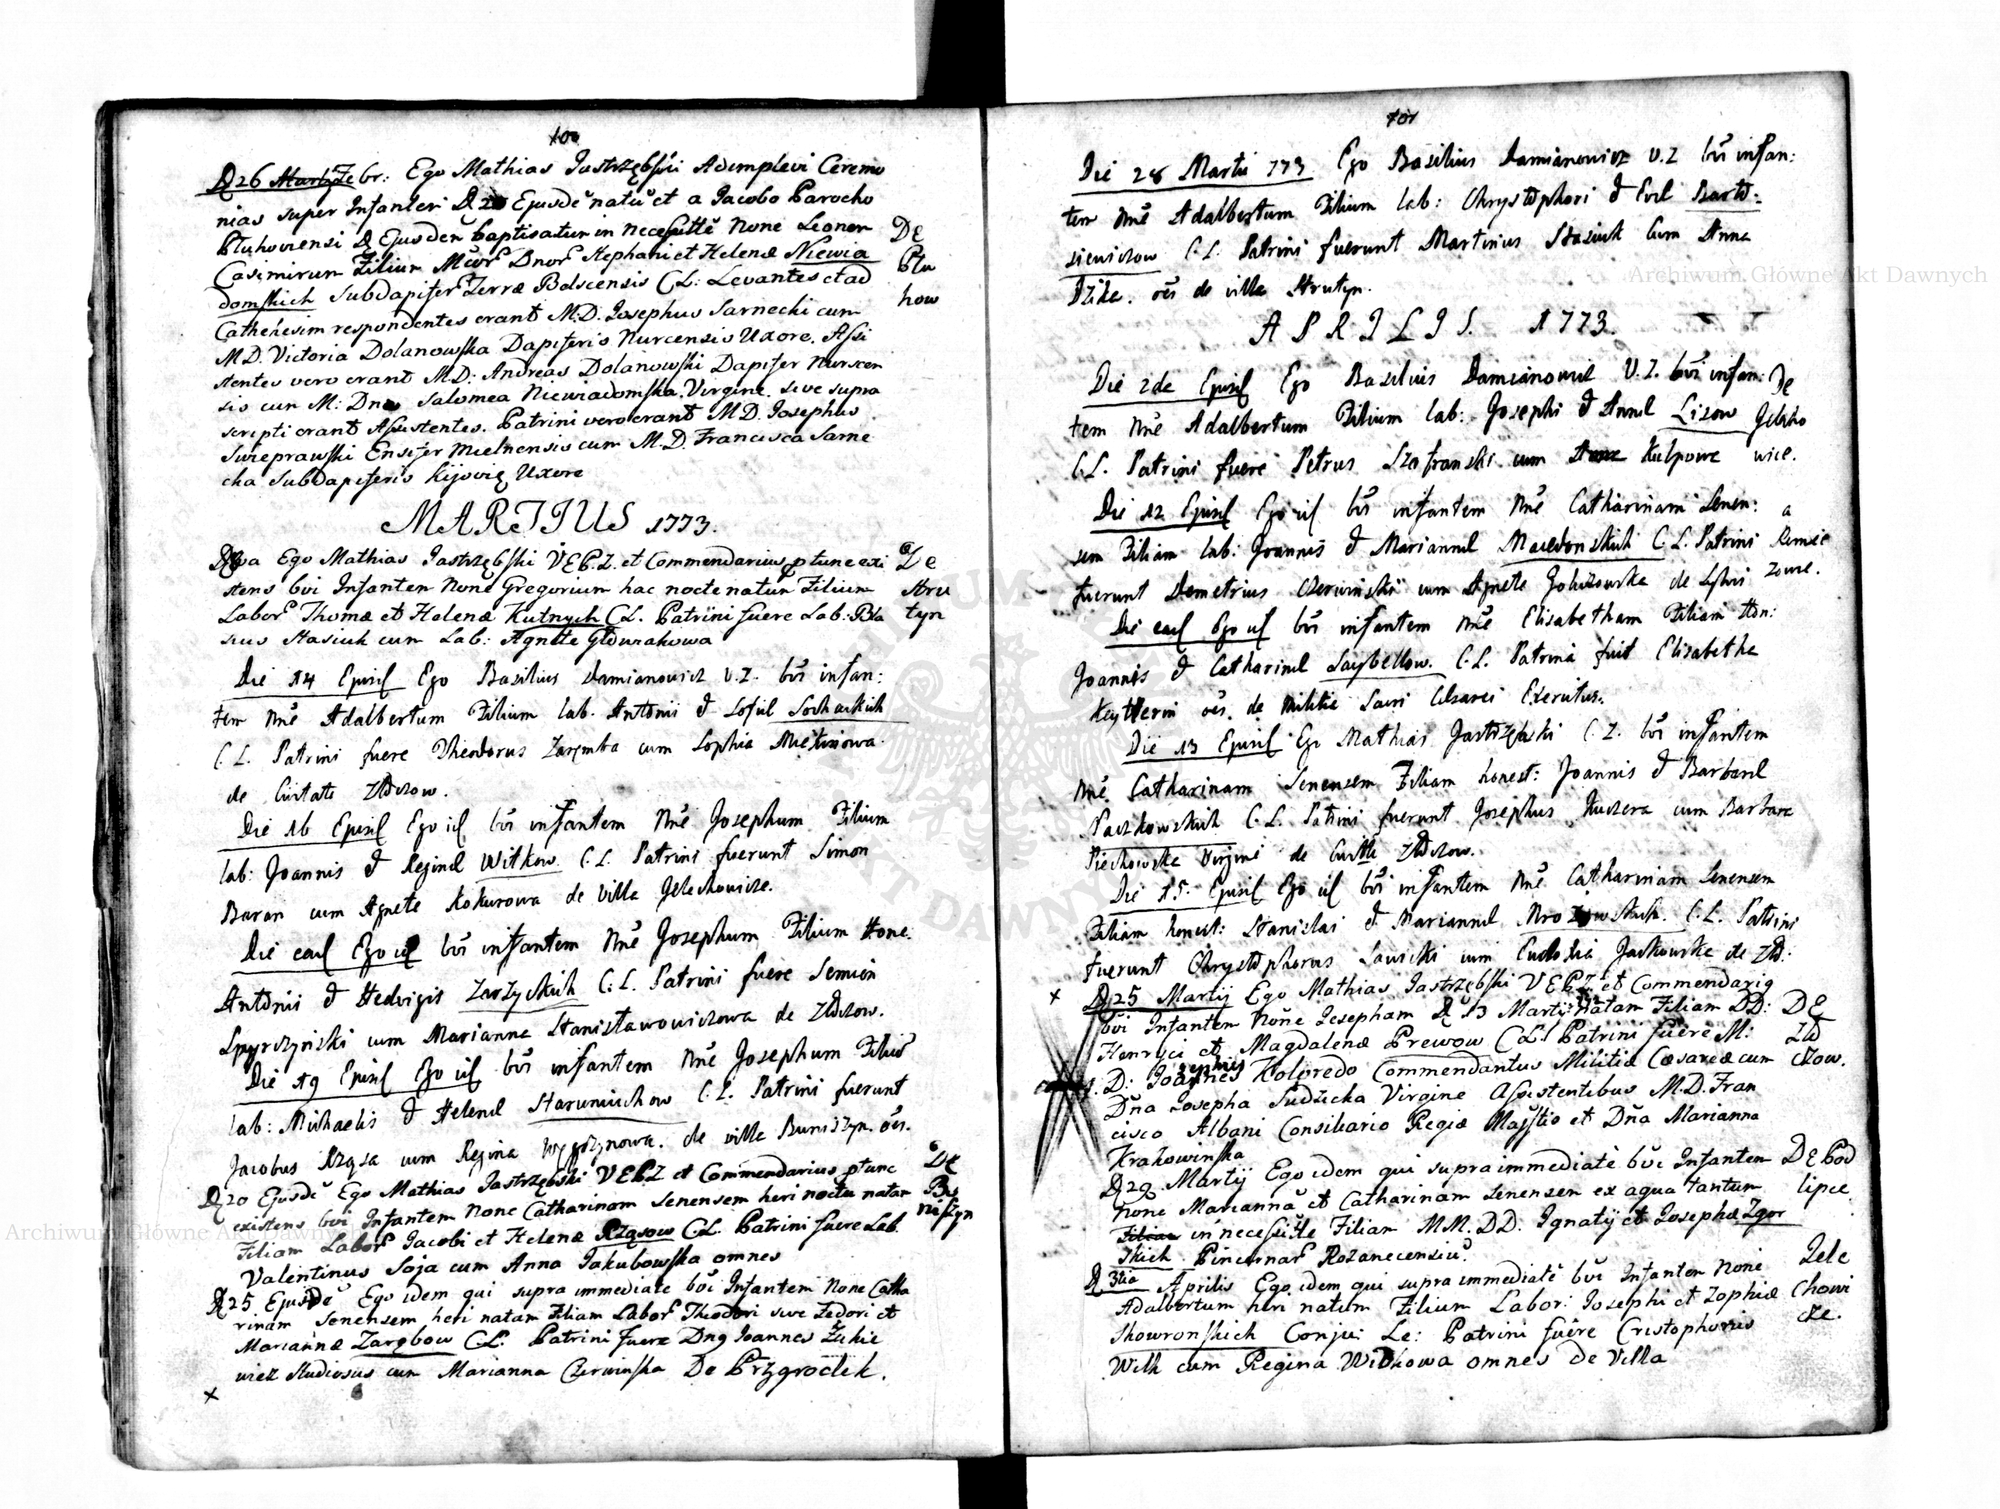 100
D 26 Martij Febr: Ego Mathias Jastrzębski Adimplevi Ceremo
nias super Infantem D 20 Ejusdē natū et a Jacobo Parocho
Pluhoviensi D Ejusdem baptisatum in necessitte None Leonem
Casimirum Filium Dnor Stephani et Helenæ Niewia
domskich SubDapifer Terræ Belscensis C.L: Levantes et ad
Cathehesim respondentes erant M.D. Josephus Sarnecki cum
M.D. Victoria Dolanowska Dapiferis Nurcensis Uxore. Assi
stentes vero erant M.D: Andreas Dolanowski Dapifer Nurscen
sis cum M: Dna Salomea Niewiadomska Virgine. sive supra
scripti erant Assistentes. Patrini vero erant M.D. Josephus
Swieprawski Ensifer Mielnensis cum M.D. Francisca Sarne
cka SubDapiferis Kijovię Uxore
De
Plu
how
MARTIUS 1773.
D 8va Ego Mathias Jastrzębski V.E.P.Z. et Commendarius ptunc exi
stens bvi Infantem None Gregorium hac nocte natum Filium
Labor Thomæ et Helenæ Kutnych C.L. Patrini fuere Lab: Bla
sius Stasiuk cum Lab: Agnete Głowakowa
De
Stru
tyn
Die 14 Ejusd Ego Basilius Damianowicz V.Z. bvi infan:
tem Nne Adalbertum Filium lab. Antonii & Sofiæ Sochackich
C.L. Patrini fuere Theodorus Zaręmba cum Sophia
de Civitate Złoczow.
Die 16 Ejusd Ego id bvi infantem Nne Josephum Filium
lab: Joannis & Reginæ Witkow C.L. Patrini fuerunt Simon
Baran cum Agnete Kokurowa de Villa Jelechowicze.
Die ead Ego id bvi infantem Nne Josephum Filium Hone.
Antonii & Hedvigis Zarzyckich C.L. Patrini fuere Semion
cum Marianna Stanisławowiczowa de Złoczow.
Die 19 Ejusd Ego id bvi infantem Nne Josephum Filiū
lab: Michaelis & Helenæ Staruniuchow C.L. Patrini fuerunt
Jacobus Rząsa cum Regina de villa Buniszyn. oēs.
D 20 Ejusdē Ego Mathias Jastrzębski V.E.P.Z et Commendarius ptunc
existens bvi Infantem None Catharinam Senensem heri noctu natam
Filiam Labor Jacobi et Helenæ Rząsow C.L. Patrini fuere Lab
Valentinus Soja cum Anna Jakubowska omnes
De
Bu
niszyn
D 25 Ejusdē Ego idem qui supra immediate bvi Infantem None Catha
rinam Senensem heri natam Filiam Labor Theodori sive Fedori et
Mariannæ Zarębow C.L. Patrini fuere Dng Joannes Żukie
wicz Studiosus cum Marianna Czerwinska De Przgrodek.
101
Die 28 Martii 773 Ego Basilius Damianowicz V.Z bvi infan:
tem Nne Adalbertum Filium lab: Chrystophori & Evæ Barto:
siewiczow C.L. Patrini fuerunt Martinus Stasiuk cum Anna
Dzika. oēs de villa Strutyn.
APRILIS. 1773.
Die 2da Ejusd Ego Basilius Damianowicz V.Z. bvi infan:
tem Nne Adalbertum Filium lab: Josephi & Annæ Lisow
C.L. Patrini fuere Petrus Szafranski cum Anna Kulpowa
De
Jelicho
wice.
Die 12 Ejusd Ego id bvi infantem Nne Catharinam Senen:
sem Filiam lab: Joannis & Mariannæ Macedonskich C.L. Patrini
fuerunt Demetrius Czerwinski cum Agnete de
Die ead Ego id bvi infantem Nne Elisabetham Filiam Hon:
Joannis & Catharinæ C.L. Patrina fuit Elisabetha
oēs. de Militia Sacri Cæsarei Exercitus.
Die 13 Ejusd Ego Mathias Jastrzębski C.Z. bvi infantem
Nne Catharinam Senensem Filiam honest: Joannis & Barbaræ
Paczkowskich C.L. Patrini fuerunt Josephus Kuczera cum Barbara
Piechowska Virgine de Civitte Złoczow.
Die 15. Ejusd Ego id bvi infantem Nne Catharinam Senensem
Filiam honest: Stanislai & Mariannæ Mrozowskich. C.L. Patrini
fuerunt Chrystophorus Sawicki cum Eudoxia Jackowska de Zło:
D 25 Martij Ego Mathias Jastrzębski V.E.P.Z. et Commendarig
bvi Infantem None Josepham D 13 Martij natam Filiam DD:
Henrici et Magdalenæ Prewow C.L. Patrini fuere M:
D: Joannes sephus Koloredo Commendantus Militiæ Cæsareæ cum
Dna Josepha Sudzicka Virgine Assistentibus M.D. Fran
cisco Albani Consiliario Regiæ Majsttis et Dna Marianna
Krakowinska
De
Zło
czow.
D 29 Martij Ego idem qui supra immediatè bvi Infantem
None Mariannā et Catharinam senensem ex aqua tantum
Filiam in necessitte Filiam MM. DD: Ignatij et Josephæ Zgor
skich Pincernar Rożanecensiū
De Pod
lipce
D 3tia Aprilis Ego idem qui supra immediatè bvi Infantem None
Adalbertum heri natum Filium Labor: Josephi et Zophiæ
Skowronskich Conju: Le: Patrini fuere Cristophorus
Wilk cum Regina Witkowa omnes de Villa
Jele
chowi
cze.
Archiwum Główne Akt Dawnych
Archiwum Główne Akt Dawnych
ARCHIWUM GŁÓWNE AKT DAWNYCH